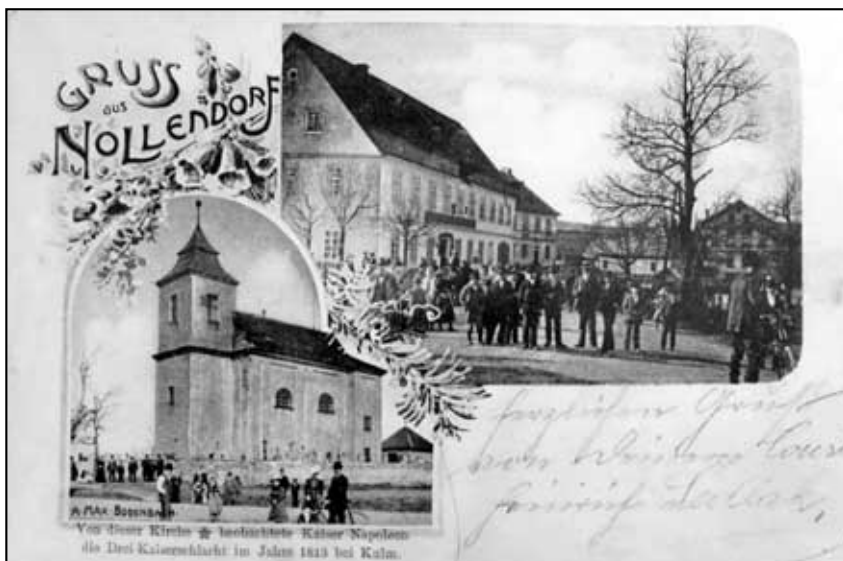 GRUSS
aus
NOLLENDORF
A. MAX BODENBACH
Von dieser Kirche ★ beobachtete Kaiser Napoleon
die Drei-Kaiserschlacht im Jahre 1813 bei Kulm.
Herzlichen Gruß
von